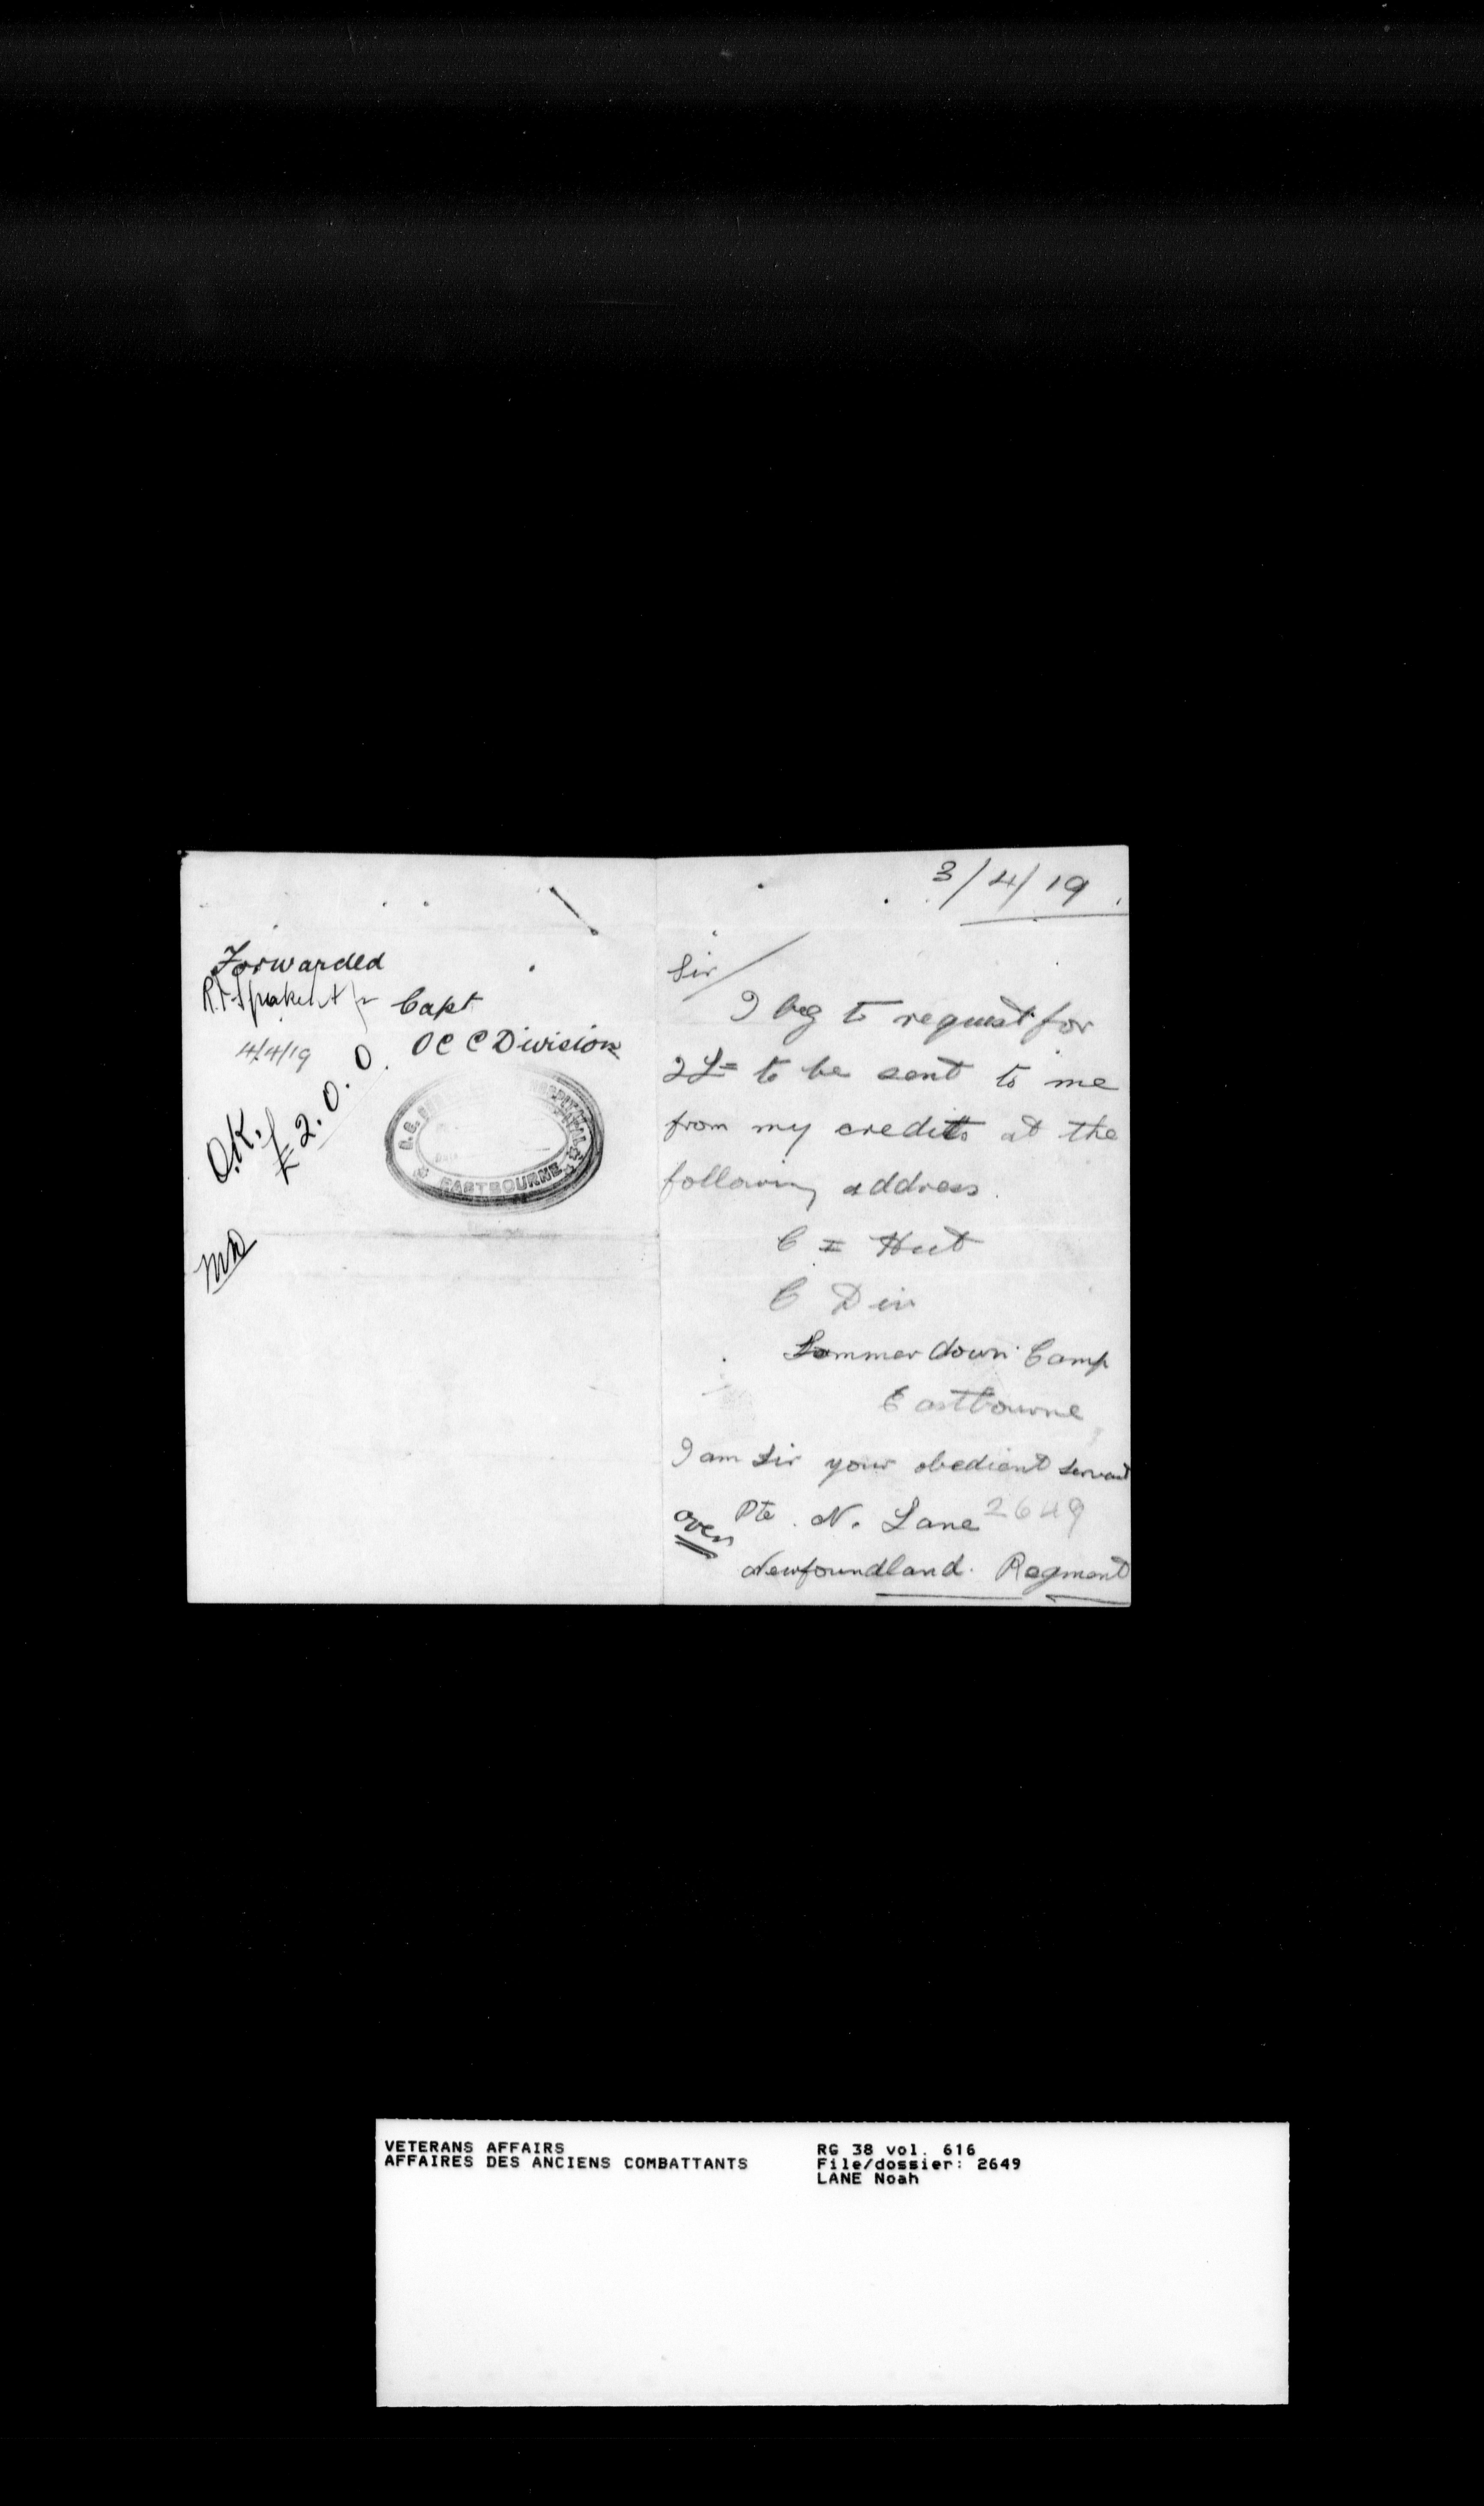 Forwarded
Capt
4/4/19
O C C Division
O.K.
£2.0.0.
EASTBOURNE
3/4/19
Sir/
I beg to request for
2£= to be sent to me
from my credits at the
following address.
C I Hut
C Div
Sommerdown Camp
Eastbourne
I am Sir your obedient servant
Pte. N. Lane 2649
over
Newfoundland. Regment
VETERANS AFFAIRS
AFFAIRES DES ANCIENS COMBATTANTS
RG 38 vol. 616
File/dossier: 2649
LANE Noah